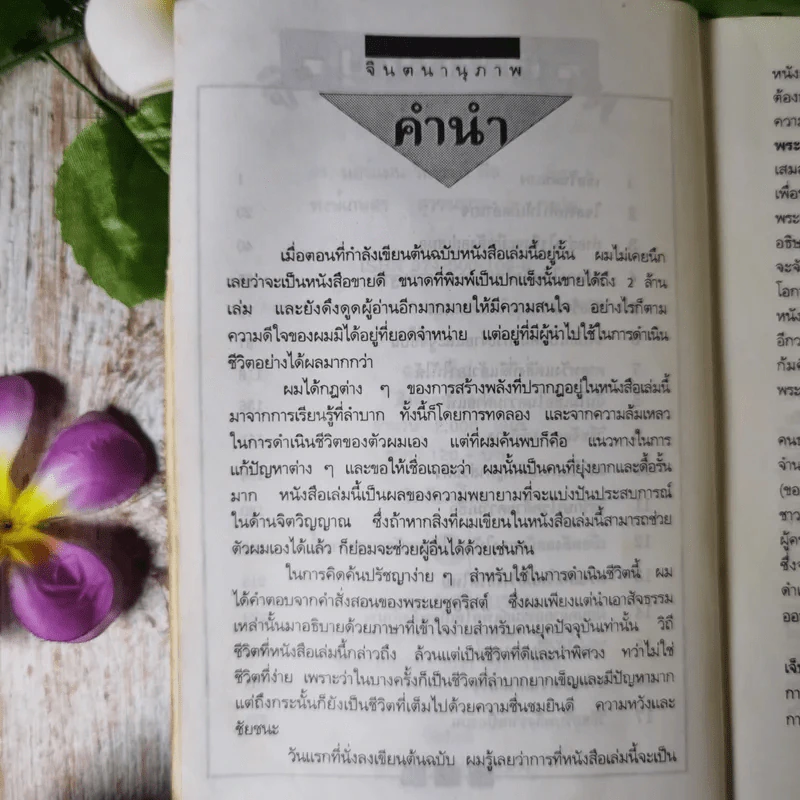 จินตนานุภาพ
คำนำ
เมื่อตอนที่กำลังเขียนต้นฉบับหนังสือเล่มนี้อยู่นั้น ผมไม่เคยนึก
เลยว่าจะเป็นหนังสือขายดี ขนาดที่พิมพ์เป็นปกแข็งนั้นขายได้ถึง 2 ล้าน
เล่ม และยังดึงดูดผู้อ่านอีกมากมายให้มีความสนใจ อย่างไรก็ตาม
ความดีใจของผมมิได้อยู่ที่ยอดจำหน่าย แต่อยู่ที่มีผู้นำไปใช้ในการดำเนิน
ชีวิตอย่างได้ผลมากกว่า
ผมได้กฎต่าง ๆ ของการสร้างพลังที่ปรากฏอยู่ในหนังสือเล่มนี้
มาจากการเรียนรู้ที่ลำบาก ทั้งนี้ก็โดยการทดลอง และจากความล้มเหลว
ในการดำเนินชีวิตของตัวผมเอง แต่ที่ผมค้นพบก็คือ แนวทางในการ
แก้ปัญหาต่าง ๆ และขอให้เชื่อเถอะว่า ผมนั้นเป็นคนที่ยุ่งยากและดื้อรั้น
มาก หนังสือเล่มนี้เป็นผลของความพยายามที่จะแบ่งปันประสบการณ์
ในด้านจิตวิญญาณ ซึ่งถ้าหากสิ่งที่ผมเขียนในหนังสือเล่มนี้สามารถช่วย
ตัวผมเองได้แล้ว ก็ย่อมจะช่วยผู้อื่นได้ด้วยเช่นกัน
ในการคิดค้นปรัชญาง่าย ๆ สำหรับใช้ในการดำเนินชีวิตนี้ ผม
ได้คำตอบจากคำสั่งสอนของพระเยซูคริสต์ ซึ่งผมเพียงแต่นำเอาสัจธรรม
เหล่านั้นมาอธิบายด้วยภาษาที่เข้าใจง่ายสำหรับคนยุคปัจจุบันเท่านั้น วิถี
ชีวิตที่หนังสือเล่มนี้กล่าวถึง ล้วนแต่เป็นชีวิตที่ดีและน่าพิศวง ทว่าไม่ใช่
ชีวิตที่ง่าย เพราะว่าในบางครั้งก็เป็นชีวิตที่ลำบากยากเข็ญและมีปัญหามาก
แต่ถึงกระนั้นก็ยังเป็นชีวิตที่เต็มไปด้วยความชื่นชมยินดี ความหวังและ
ชัยชนะ
วันแรกที่นั่งลงเขียนต้นฉบับ ผมรู้เลยว่าการที่หนังสือเล่มนี้จะเป็น